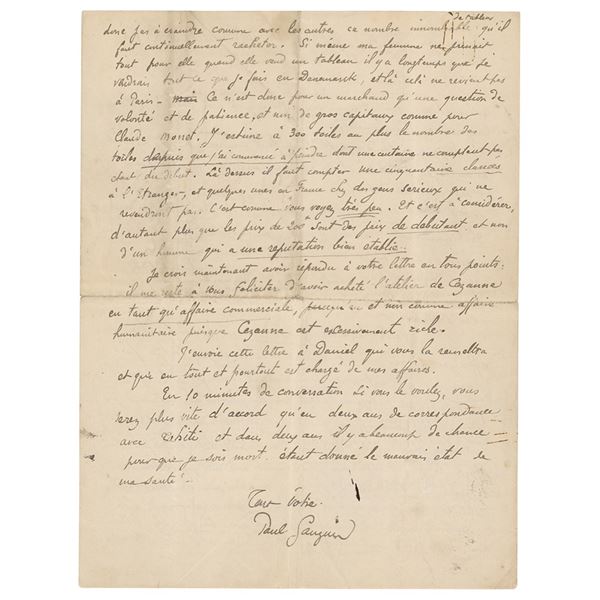 de tableaux
donc pas à craindre comme avec les autres ce nombre innombrable qu'il
faut continuellement racheter. Si même ma femme ne prenait
tout pour elle quand elle vend un tableau il y a longtemps que je
vendrais tout ce que je fais en Danemarck, et là celà ne revient pas
à Paris - mais Ce n'est donc pour un marchand qu'une question de
volonté et de patience, et non de gros capitaux comme pour
Claude Monet. J'estime à 300 toiles au plus le nombre des
toiles depuis que j'ai commencé à peindre dont une centaine ne comptant pas
étant du début. Là dessus il faut compter une cinquantaine classés
à l'Etranger, et quelques unes en France chez des gens serieux qui ne
revendront pas. C'est comme vous voyez très peu. Et c'est à considérer,
d'autant plus que les prix de 200 sont des prix de débutant et non
d'un homme qui a une reputation bien établie.
Je crois maintenant avoir répondu à votre lettre en tous points:
il me reste à vous féliciter d'avoir acheté l'atelier de Cezanne
en tant qu'affaire commerciale, et non comme affaire
humanitaire puisque Cezanne est excessivement riche.
J'envoie cette lettre à Daniel qui vous la remettra
et qui en tout et pourtout est chargé de mes affaires.
En 10 minutes de conversation Si vous le voulez, vous
serez plus vite d'accord qu'en deux ans de correspondance
avec Tahiti et dans deux ans il y a beaucoup de chance
pour que je sois mort étant donné le mauvais état de
ma santé.
Tout Votre.
Paul Gauguin